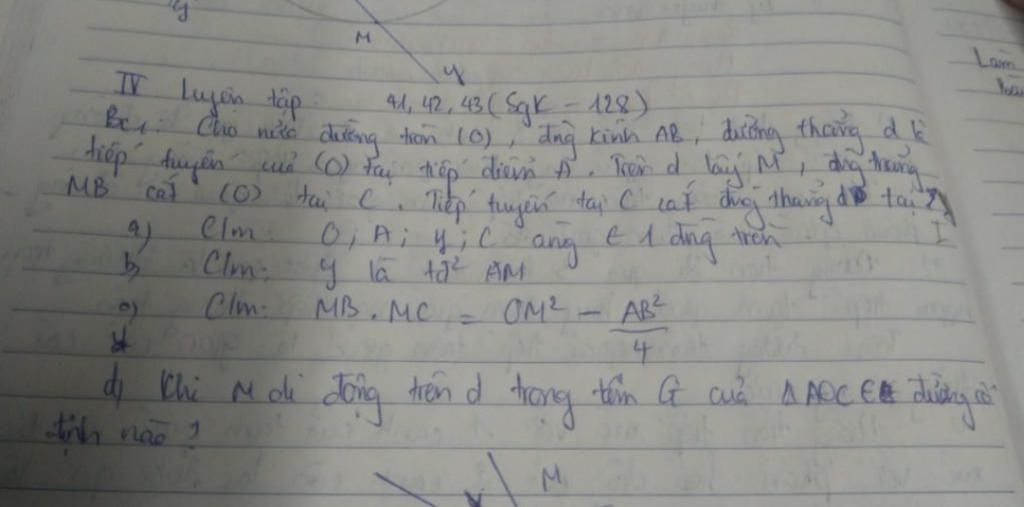 M
y
IV Luyện tập: 41, 42, 43 (Sgk - 128)
Bài 1: Cho nửa đường tròn (O), đng kính AB, đường thẳng d là
tiếp tuyến của (O) tại tiếp điểm A. Trên d lấy M, đng thẳng
MB cắt (O) tại C. Tiếp tuyến tại C cắt đng thẳng d tại I
a) C/m: O; A; y; C cùng ∈ 1 đng tròn
b) C/m: y là tđ² AM
c) C/m: MB . MC = OM² - AB²/4
d) Khi M di động trên d trọng tâm G của Δ AOC ∈ đường cố
định nào?
M
Làm